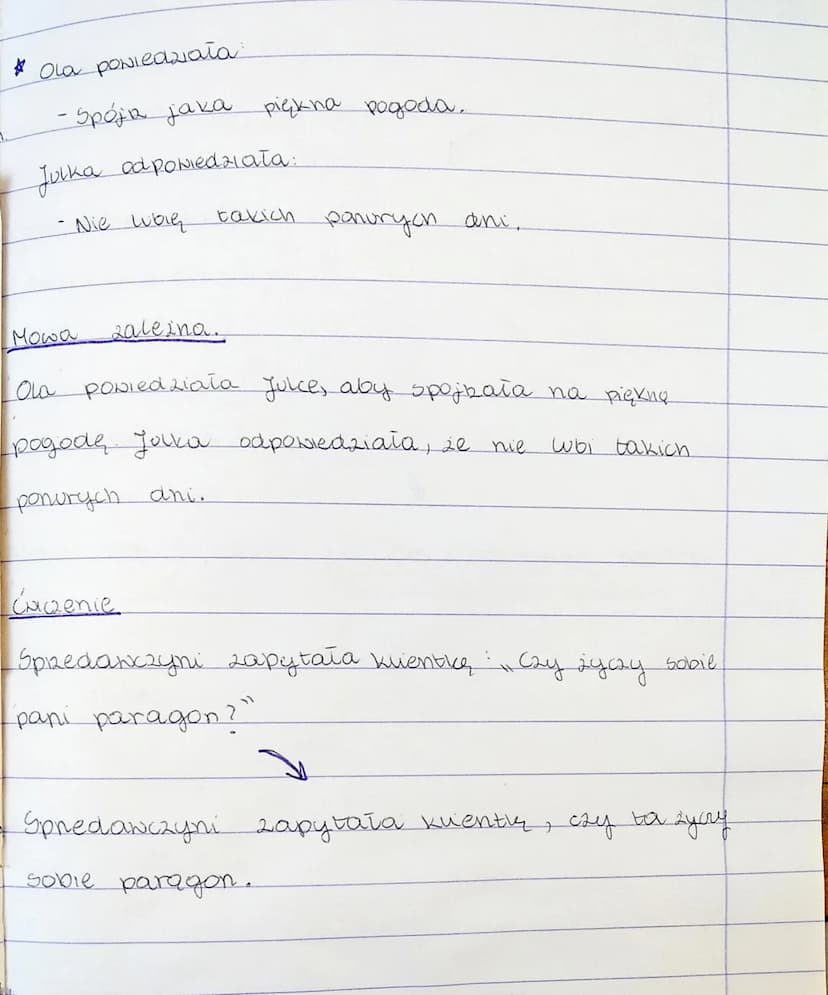 * Ola powiedziała:
- Spójrz jaka piękna pogoda.
Julka odpowiedziała:
- Nie lubię takich ponurych dni.
Mowa zależna.
Ola powiedziała Julce, aby spojrzała na piękną
pogodę. Julka odpowiedziała, że nie lubi takich
ponurych dni.
Ćwiczenie
Sprzedawczyni zapytała klientkę: „Czy życzy sobie
pani paragon?"
Sprzedawczyni zapytała klientkę, czy ta życzy
sobie paragon.